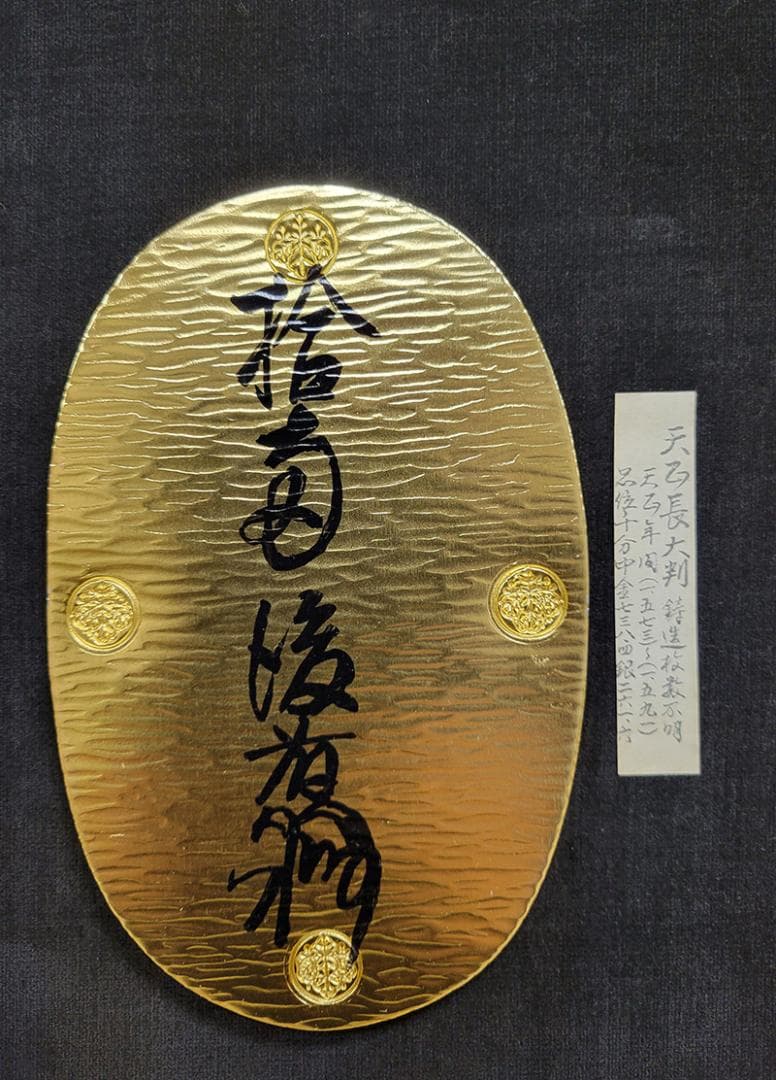 拾両 後藤
天正長大判 鋳造枚数不明
天正年間(一五七三〜(一五九一)
品位千分中金七三八四銀二六一・六